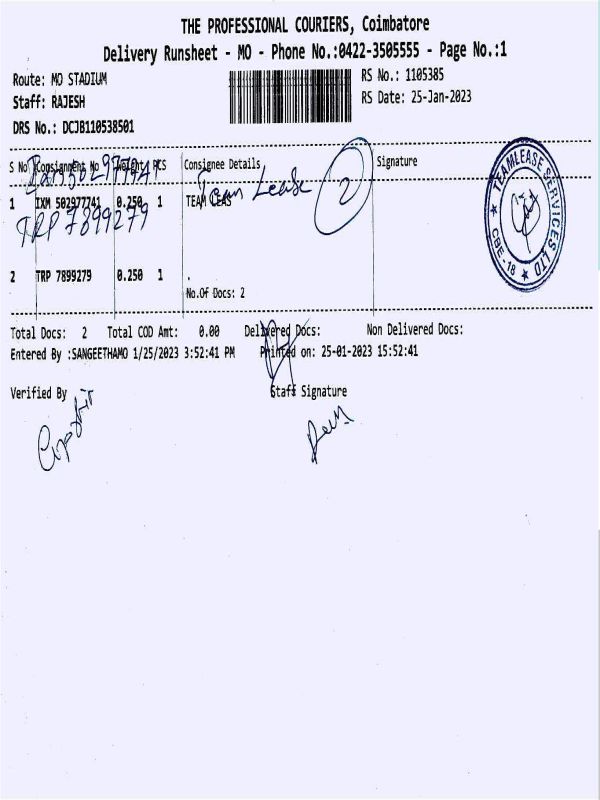 THE PROFESSIONAL COURIERS, Coimbatore
Delivery Runsheet - MO - Phone No.:0422-3505555 - Page No.:1
Route: MO STADIUM
RS No.: 1105385
Staff: RAJESH
RS Date: 25-Jan-2023
DRS No.: DCJB110538501
S No Consignment No Weight PCS Consignee Details Signature
Team Lease 2
1 IXM 502977741 0.250 1 TEAM LEAS
TRP 7899279
TEAMLEASE SERVICES LTD
CBE - 18
2 TRP 7899279 0.250 1 .
No.Of Docs: 2
Total Docs: 2 Total COD Amt: 0.00 Delivered Docs: Non Delivered Docs:
Entered By :SANGEETHAMO 1/25/2023 3:52:41 PM Printed on: 25-01-2023 15:52:41
Verified By Staff Signature